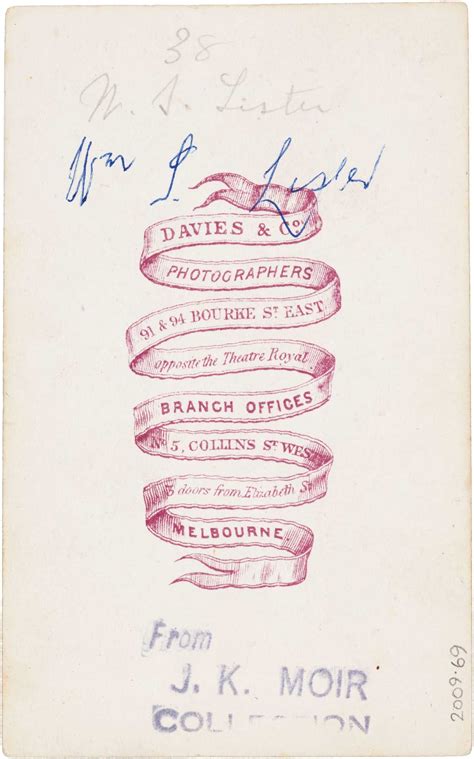 38
W. S. Lister
Wm S. Lister
DAVIES & Co.
PHOTOGRAPHERS
91 & 94 BOURKE St EAST
opposite the Theatre Royal.
BRANCH OFFICES
No 5, COLLINS St WEST
3 doors from Elizabeth St
MELBOURNE
From
J. K. MOIR
COLLECTION
2009.69